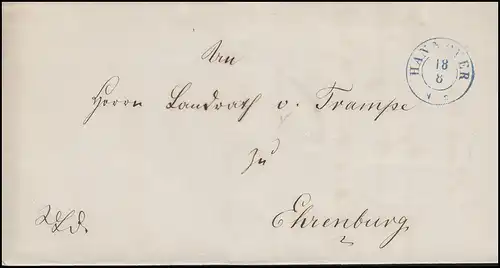 HANNOVER
18
8
An
Herrn Landrath v. Trampe
zu
Ehrenburg